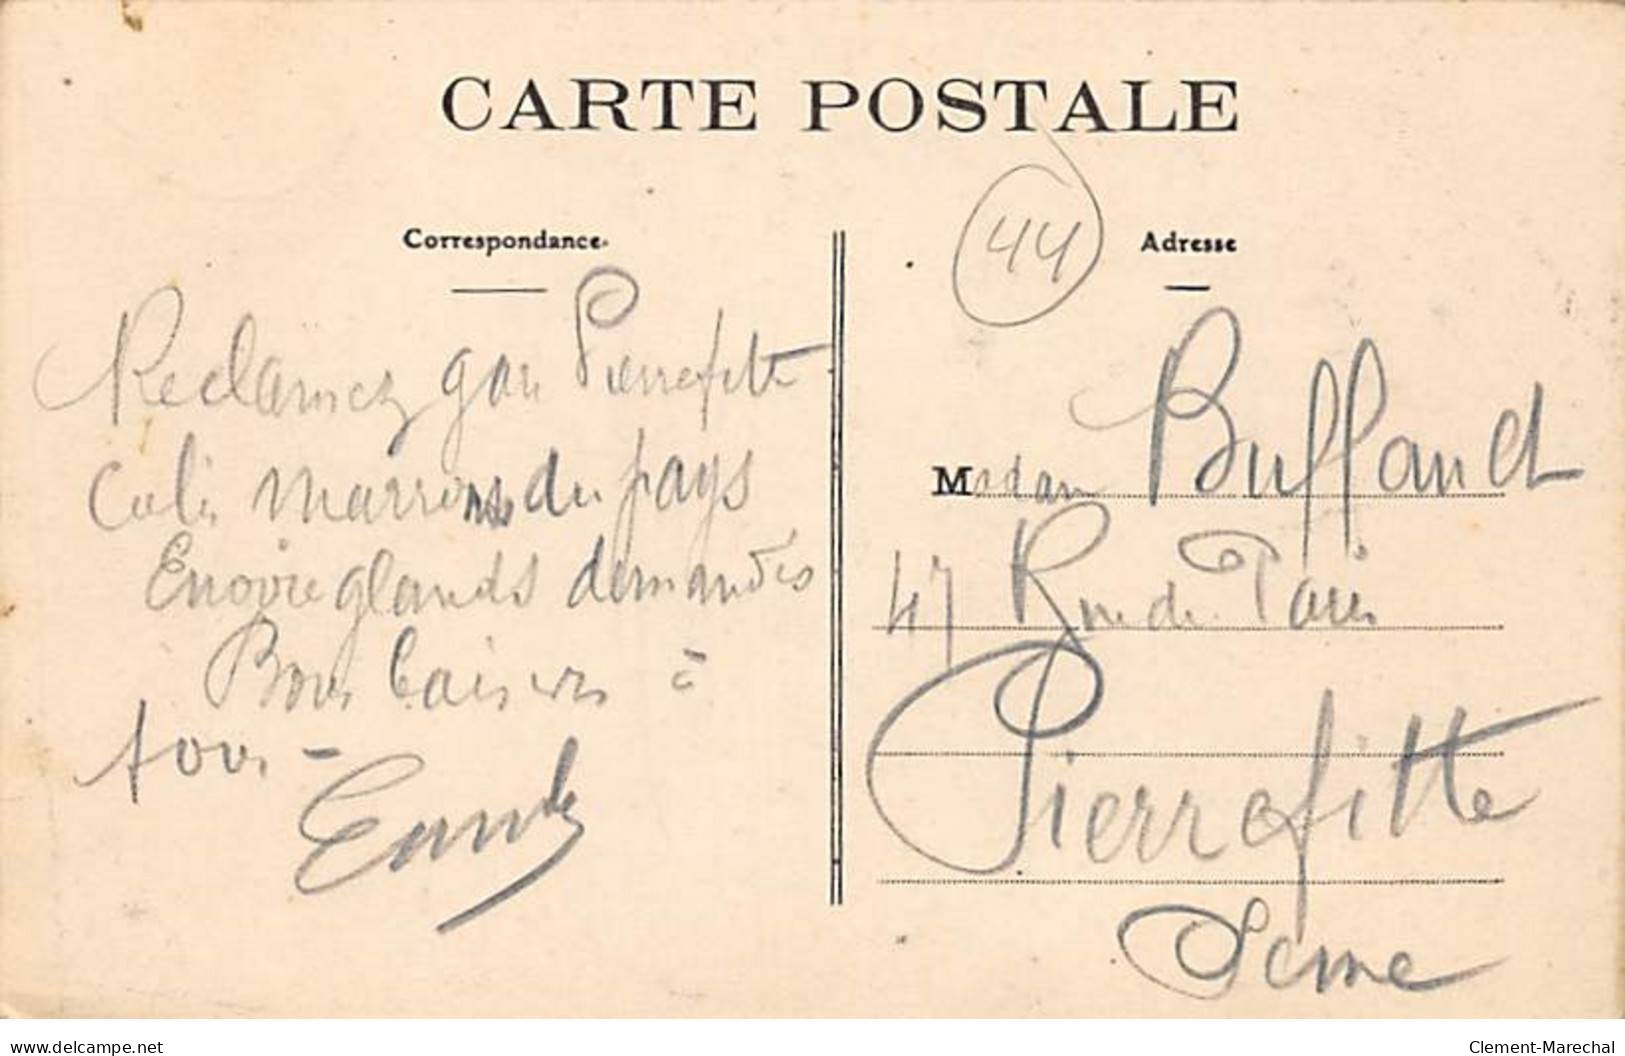 CARTE POSTALE
Correspondance
Reclamez gare Pierrefitte
Colis marrons du pays
Envoie glands demandés
Bons baisers à
tous -
44
Adresse
Madame Buffault
47 Rue de Paris
Pierrefitte
Seine
delcampe.net
Clement-Marechal